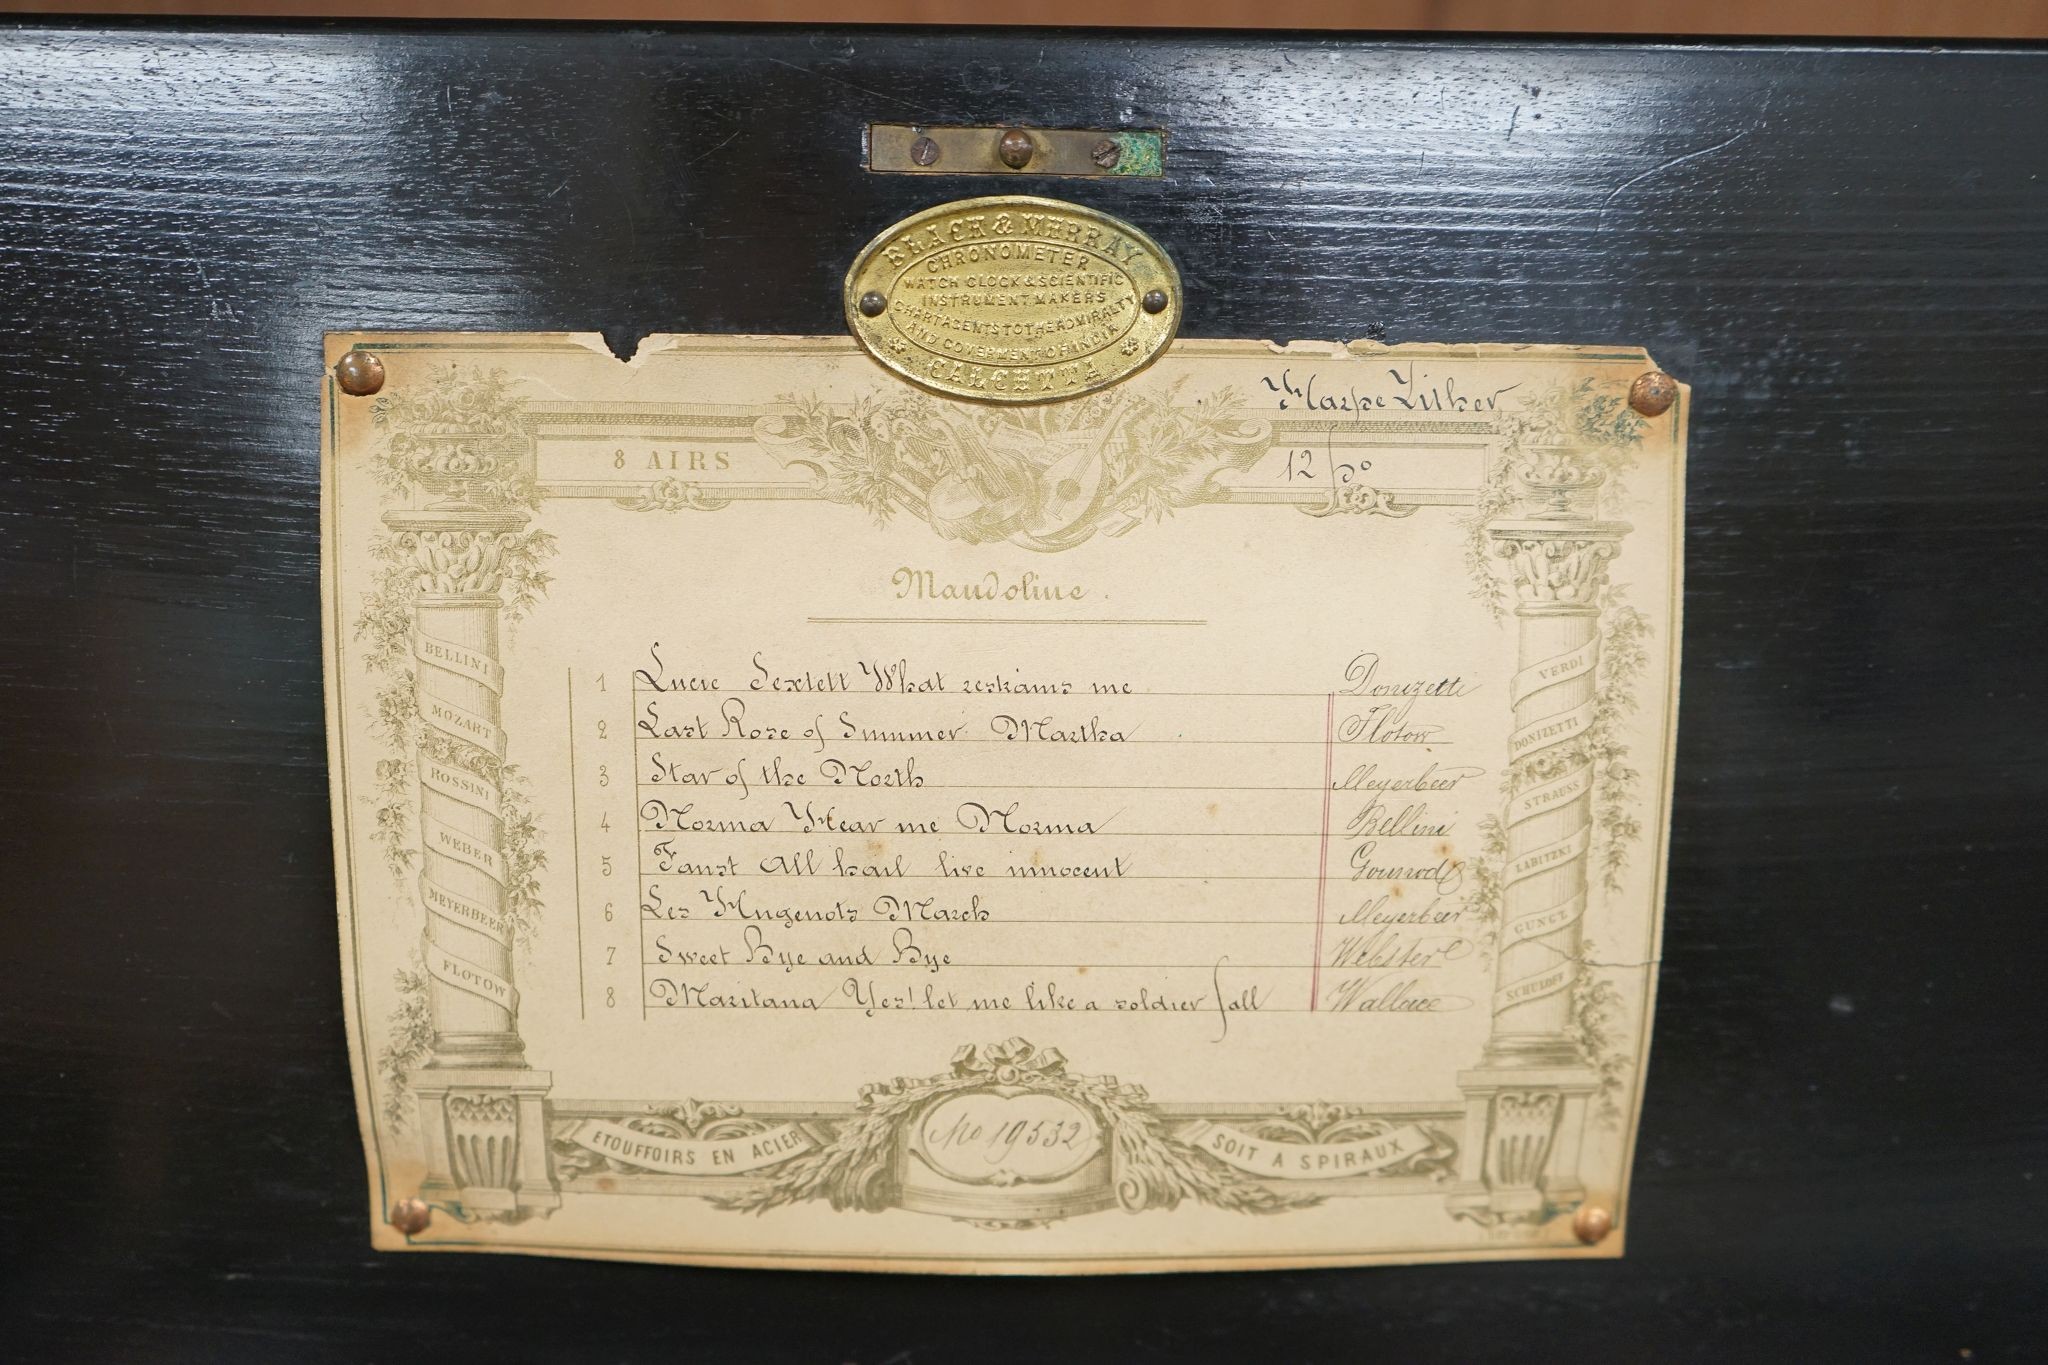 BLACK & MURRAY
CHRONOMETER
WATCH CLOCK & SCIENTIFIC
INSTRUMENT MAKERS
CHART AGENTS TO THE ADMIRALTY
AND GOVERMENT OF INDIA
CALCUTTA
Harpe Zither
8 AIRS
12 po
Mandoline.
1 Lucie Sextett What restrains me Donizetti
2 Last Rose of Summer Martha Flotow
3 Star of the North Meyerbeer
4 Norma Hear me Norma Bellini
5 Faust All hail live innocent Gounod
6 Les Hugenots March Meyerbeer
7 Sweet Bye and Bye Webster
8 Maritana Yes! let me like a soldier fall Wallace
BELLINI
MOZART
ROSSINI
WEBER
MEYERBEER
FLOTOW
VERDI
DONIZETTI
STRAUSS
LABITZKI
GUNGL
SCHULOFF
ETOUFFOIRS EN ACIER
No 19532
SOIT A SPIRAUX